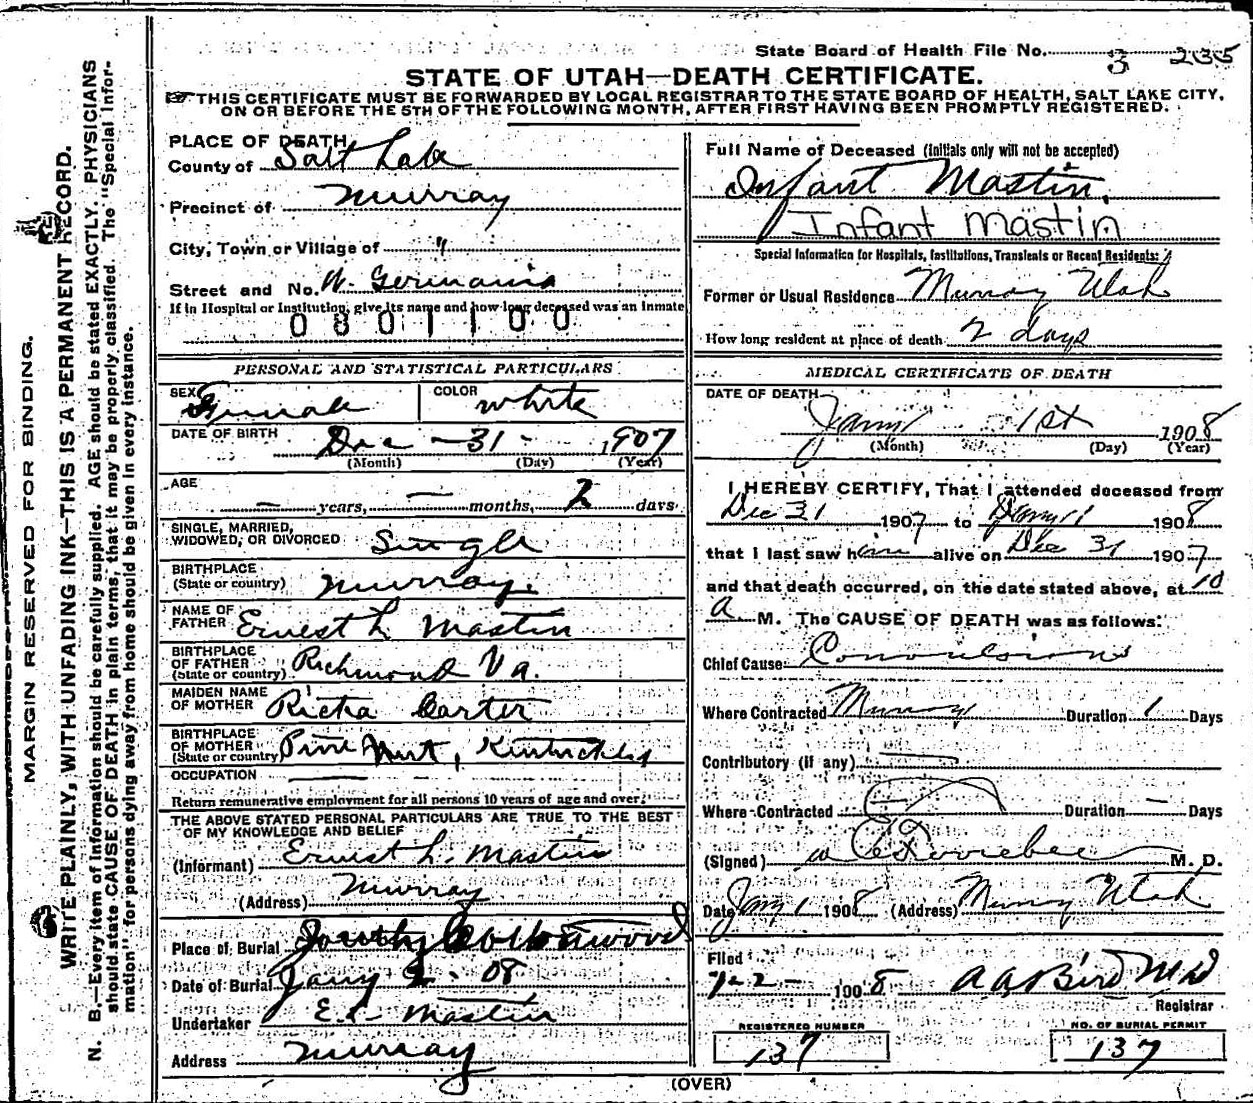 State Board of Health File No. 3 235
STATE OF UTAH—DEATH CERTIFICATE.
THIS CERTIFICATE MUST BE FORWARDED BY LOCAL REGISTRAR TO THE STATE BOARD OF HEALTH, SALT LAKE CITY,
ON OR BEFORE THE 5TH OF THE FOLLOWING MONTH, AFTER FIRST HAVING BEEN PROMPTLY REGISTERED.
MARGIN RESERVED FOR BINDING.
WRITE PLAINLY, WITH UNFADING INK—THIS IS A PERMANENT RECORD.
N. B.—Every item of information should be carefully supplied. AGE should be stated EXACTLY. PHYSICIANS
should state CAUSE OF DEATH in plain terms, that it may be properly classified. The "Special Infor-
mation" for persons dying away from home should be given in every instance.
PLACE OF DEATH
County of Salt Lake
Precinct of Murray
City, Town or Village of "
Street and No. W. Germania
If in Hospital or Institution, give its name and how long deceased was an inmate
0801100
PERSONAL AND STATISTICAL PARTICULARS
SEX Female COLOR White
DATE OF BIRTH Dec - 31 - 1907
(Month) (Day) (Year)
AGE
— years, — months, 2 days
SINGLE, MARRIED,
WIDOWED, OR DIVORCED Single
BIRTHPLACE
(State or country) Murray.
NAME OF
FATHER Ernest L Mastin
BIRTHPLACE
OF FATHER
(State or country) Richmond Va.
MAIDEN NAME
OF MOTHER Ricka Carter
BIRTHPLACE
OF MOTHER
(State or country) Pine
OCCUPATION —
Return remunerative employment for all persons 10 years of age and over.
THE ABOVE STATED PERSONAL PARTICULARS ARE TRUE TO THE BEST
OF MY KNOWLEDGE AND BELIEF
(Informant) Ernest L. Mastin
(Address) Murray
Place of Burial Cottonwood
Date of Burial Jany 2 - 08
Undertaker E. L. Mastin
Address Murray
Full Name of Deceased (Initials only will not be accepted)
Infant Mastin,
Infant Mastin
Special Information for Hospitals, Institutions, Transients or Recent Residents:
Former or Usual Residence Murray Utah
How long resident at place of death 2 days
MEDICAL CERTIFICATE OF DEATH
DATE OF DEATH
Jany 1st 1908
(Month) (Day) (Year)
I HEREBY CERTIFY, That I attended deceased from
Dec 31 1907 to Jany 1 1908
that I last saw him alive on Dec 31 1907
and that death occurred, on the date stated above, at 10
a M. The CAUSE OF DEATH was as follows:
Chief Cause Convulsions
Where Contracted Murray Duration 1 Days
Contributory (if any)
Where Contracted Duration — Days
(Signed) M. D.
Date Jany 1 1908 (Address) Murray Utah
Filed
1-2- 1908 A A Bird MD
Registrar
REGISTERED NUMBER
137
NO. OF BURIAL PERMIT
137
(OVER)